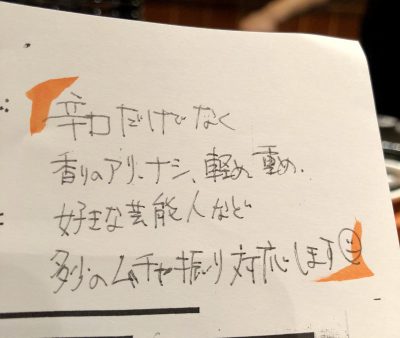 辛口だけでなく
香りのアリ・ナシ、軽め、重め、
好きな芸能人など
多少のムチャ振り対応します